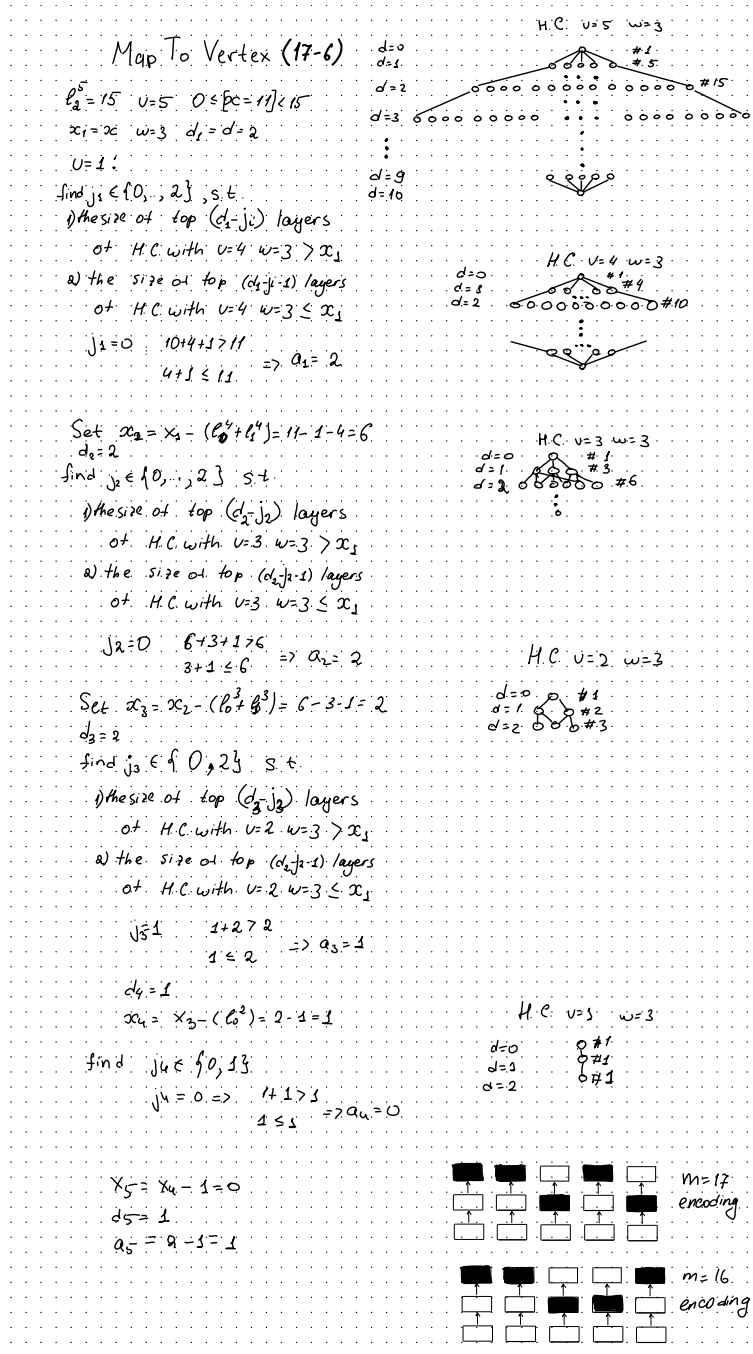 Map To Vertex (17-6)
ℓ₂⁵ = 15 v=5 0 ≤ [x = 11] < 15
x₁ = x w=3 d₁ = d = 2
v=1:
find j₁ ∈ {0,.., 2}, s.t.
1) the size of top (d₁-jᵢ) layers
of H.C. with v=4 w=3 > x₁
2) the size of top (d₁-j₁-1) layers
of H.C. with v=4 w=3 ≤ x₁
j₁=0 10+4+1>11
4+1 ≤ 11 => a₁= 2
Set x₂ = x₁ - (ℓ₀⁴+ℓ₁⁴)=11-1-4=6
d₂=2
find j₂ ∈ {0,..,2} s.t.
1) the size of top (d₂-j₂) layers
of H.C. with v=3 w=3 > x₁
2) the size of top (d₂-j₂-1) layers
of H.C. with v=3 w=3 ≤ x₁
j₂=0 6+3+1>6
3+1 ≤ 6 => a₂= 2
Set x₃ = x₂ - (ℓ₀³+ℓ₁³)= 6-3-1= 2
d₃=2
find j₃ ∈ {0,2} s.t.
1) the size of top (d₃-j₃) layers
of H.C. with v=2 w=3 > x₁
2) the size of top (d₂-j₂-1) layers
of H.C. with v=2 w=3 ≤ x₁
j₃=1 1+2 > 2
1 ≤ 2 => a₃=1
d₄=1
x₄= x₃-(ℓ₀²)= 2-1=1
find j₄ ∈ {0,1}
j₄=0 => 1+1>1
1 ≤ 1 => a₄=0
x₅= x₄-1=0
d₅= 1
a₅ = 2-1=1
H.C. v=5 w=3
d=0 #1
d=1 #5
d=2 #15
d=3
d=9
d=10
H.C. v=4 w=3
d=0 #1
d=1 #4
d=2 #10
H.C. v=3 w=3
d=0 #1
d=1 #3
d=2 #6
H.C. v=2 w=3
d=0 #1
d=1 #2
d=2 #3
H.C. v=1 w=3
d=0 #1
d=1 #1
d=2 #1
m=17
encoding
m=16
encoding